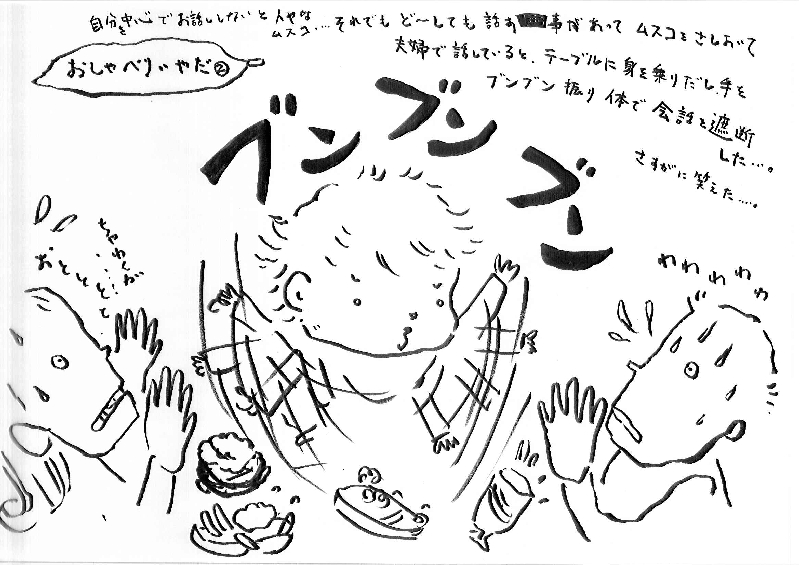 自分を中心でお話ししないと イヤな
ムスコ… それでも ど〜しても 話す事があって ムスコをさしおいて
夫婦で話していると、テーブルに身を乗りだし、手を
ブンブン振り体で会話を遮断
した…。
さすがに笑えた…。
おしゃべりいやだ②
ブン
ブン
ブーン
ちゃわんが…
おとととと
わわわわわ